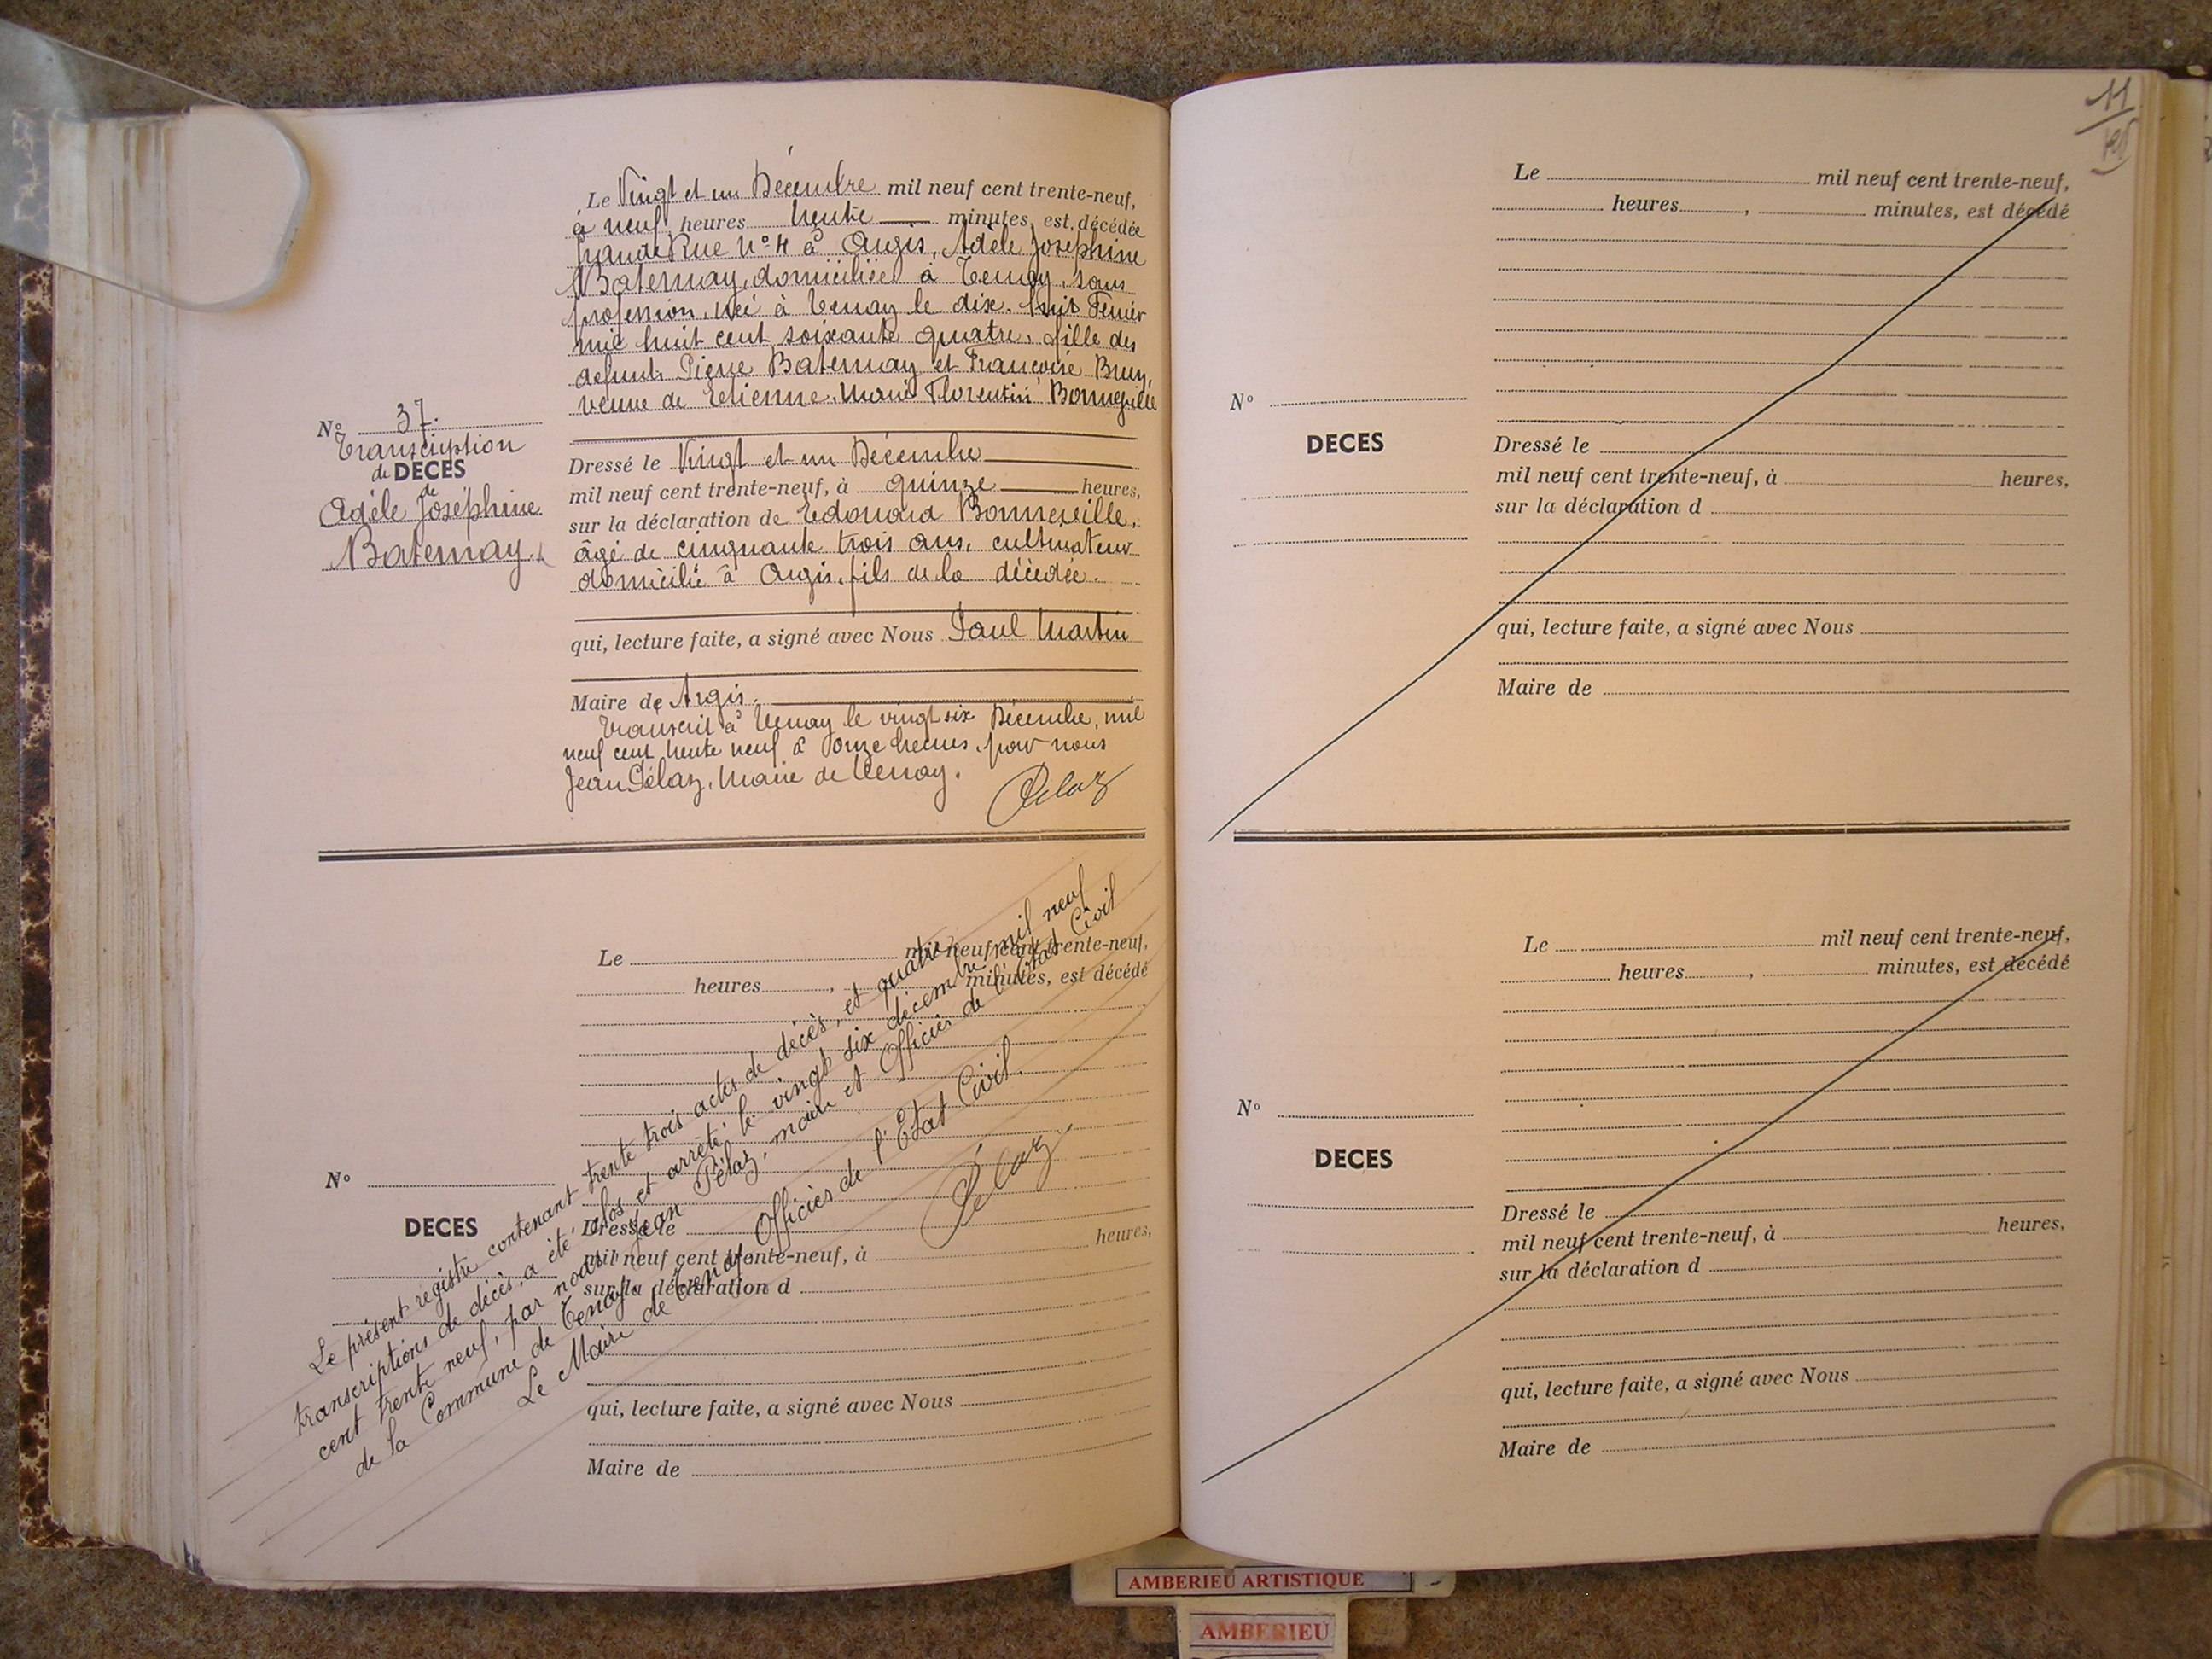 Le Vingt et un Décembre mil neuf cent trente-neuf,
à neuf heures trente minutes, est décédée
Grande Rue N° 4 à Argis, Adèle Joséphine
Baternay, domiciliée à Tenay, sans
profession, née à Tenay le dix-huit Février
mil huit cent soixante quatre, fille des
défunts Pierre Baternay et Françoise Brun,
veuve de Etienne, Marie Florentin Bonneville
N° 37.
Transcription
de DECES
de
Adèle Joséphine
Baternay.
Dressé le Vingt et un Décembre
mil neuf cent trente-neuf, à quinze heures,
sur la déclaration de Edouard Bonneville,
âgé de cinquante trois ans, cultivateur
domicilié à Argis, fils de la décédée.
qui, lecture faite, a signé avec Nous Paul Martin
Maire de Argis.
Transcrit à Tenay le vingt six Décembre, mil
neuf cent trente neuf à onze heures, par nous
Jean Pélaz, Maire de Tenay.
Pélaz
Le mil neuf cent trente-neuf,
heures , minutes, est décédé
N°
DECES
Dressé le
mil neuf cent trente-neuf, à heures,
sur la déclaration d
qui, lecture faite, a signé avec Nous
Maire de
Le présent registre contenant trente trois actes de décès, et quatre
transcriptions de décès, a été clos et arrêté, le vingt six décembre mil neuf
cent trente neuf, par nous Jean Pélaz, maire et Officier de l'Etat Civil
de la Commune de Tenay.
Le Maire de Tenay Officier de l'Etat Civil.
Pélaz
11
Le mil neuf cent trente-neuf,
heures , minutes, est décédé
N°
DECES
Dressé le
mil neuf cent trente-neuf, à heures,
sur la déclaration d
qui, lecture faite, a signé avec Nous
Maire de
Le mil neuf cent trente-neuf,
heures , minutes, est décédé
N°
DECES
Dressé le
mil neuf cent trente-neuf, à heures,
sur la déclaration d
qui, lecture faite, a signé avec Nous
Maire de
AMBERIEU ARTISTIQUE
AMBERIEU